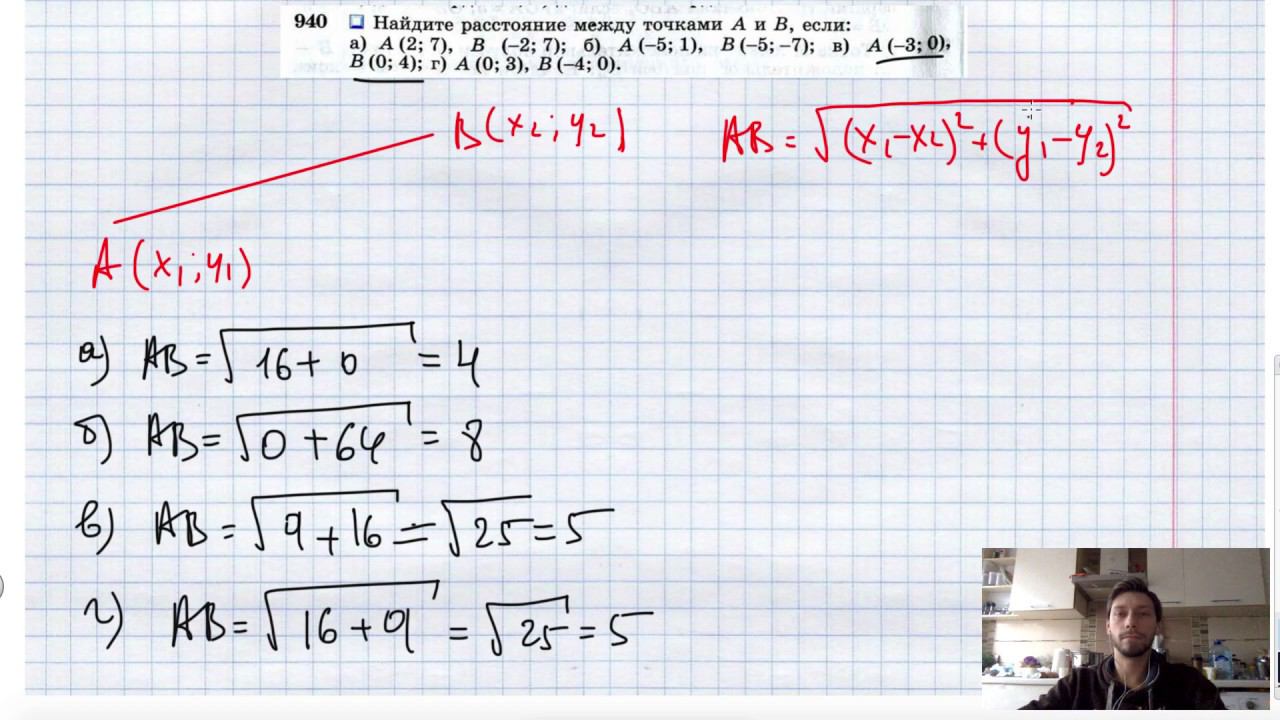 940 Найдите расстояние между точками A и B, если:
а) A (2; 7), B (−2; 7); б) A (−5; 1), B (−5; −7); в) A (−3; 0),
B (0; 4); г) A (0; 3), B (−4; 0).
B(x₂; y₂) AB = √(x₁−x₂)²+(y₁−y₂)²
A(x₁; y₁)
а) AB = √16+0 = 4
б) AB = √0+64 = 8
в) AB = √9+16 = √25 = 5
г) AB = √16+9 = √25 = 5